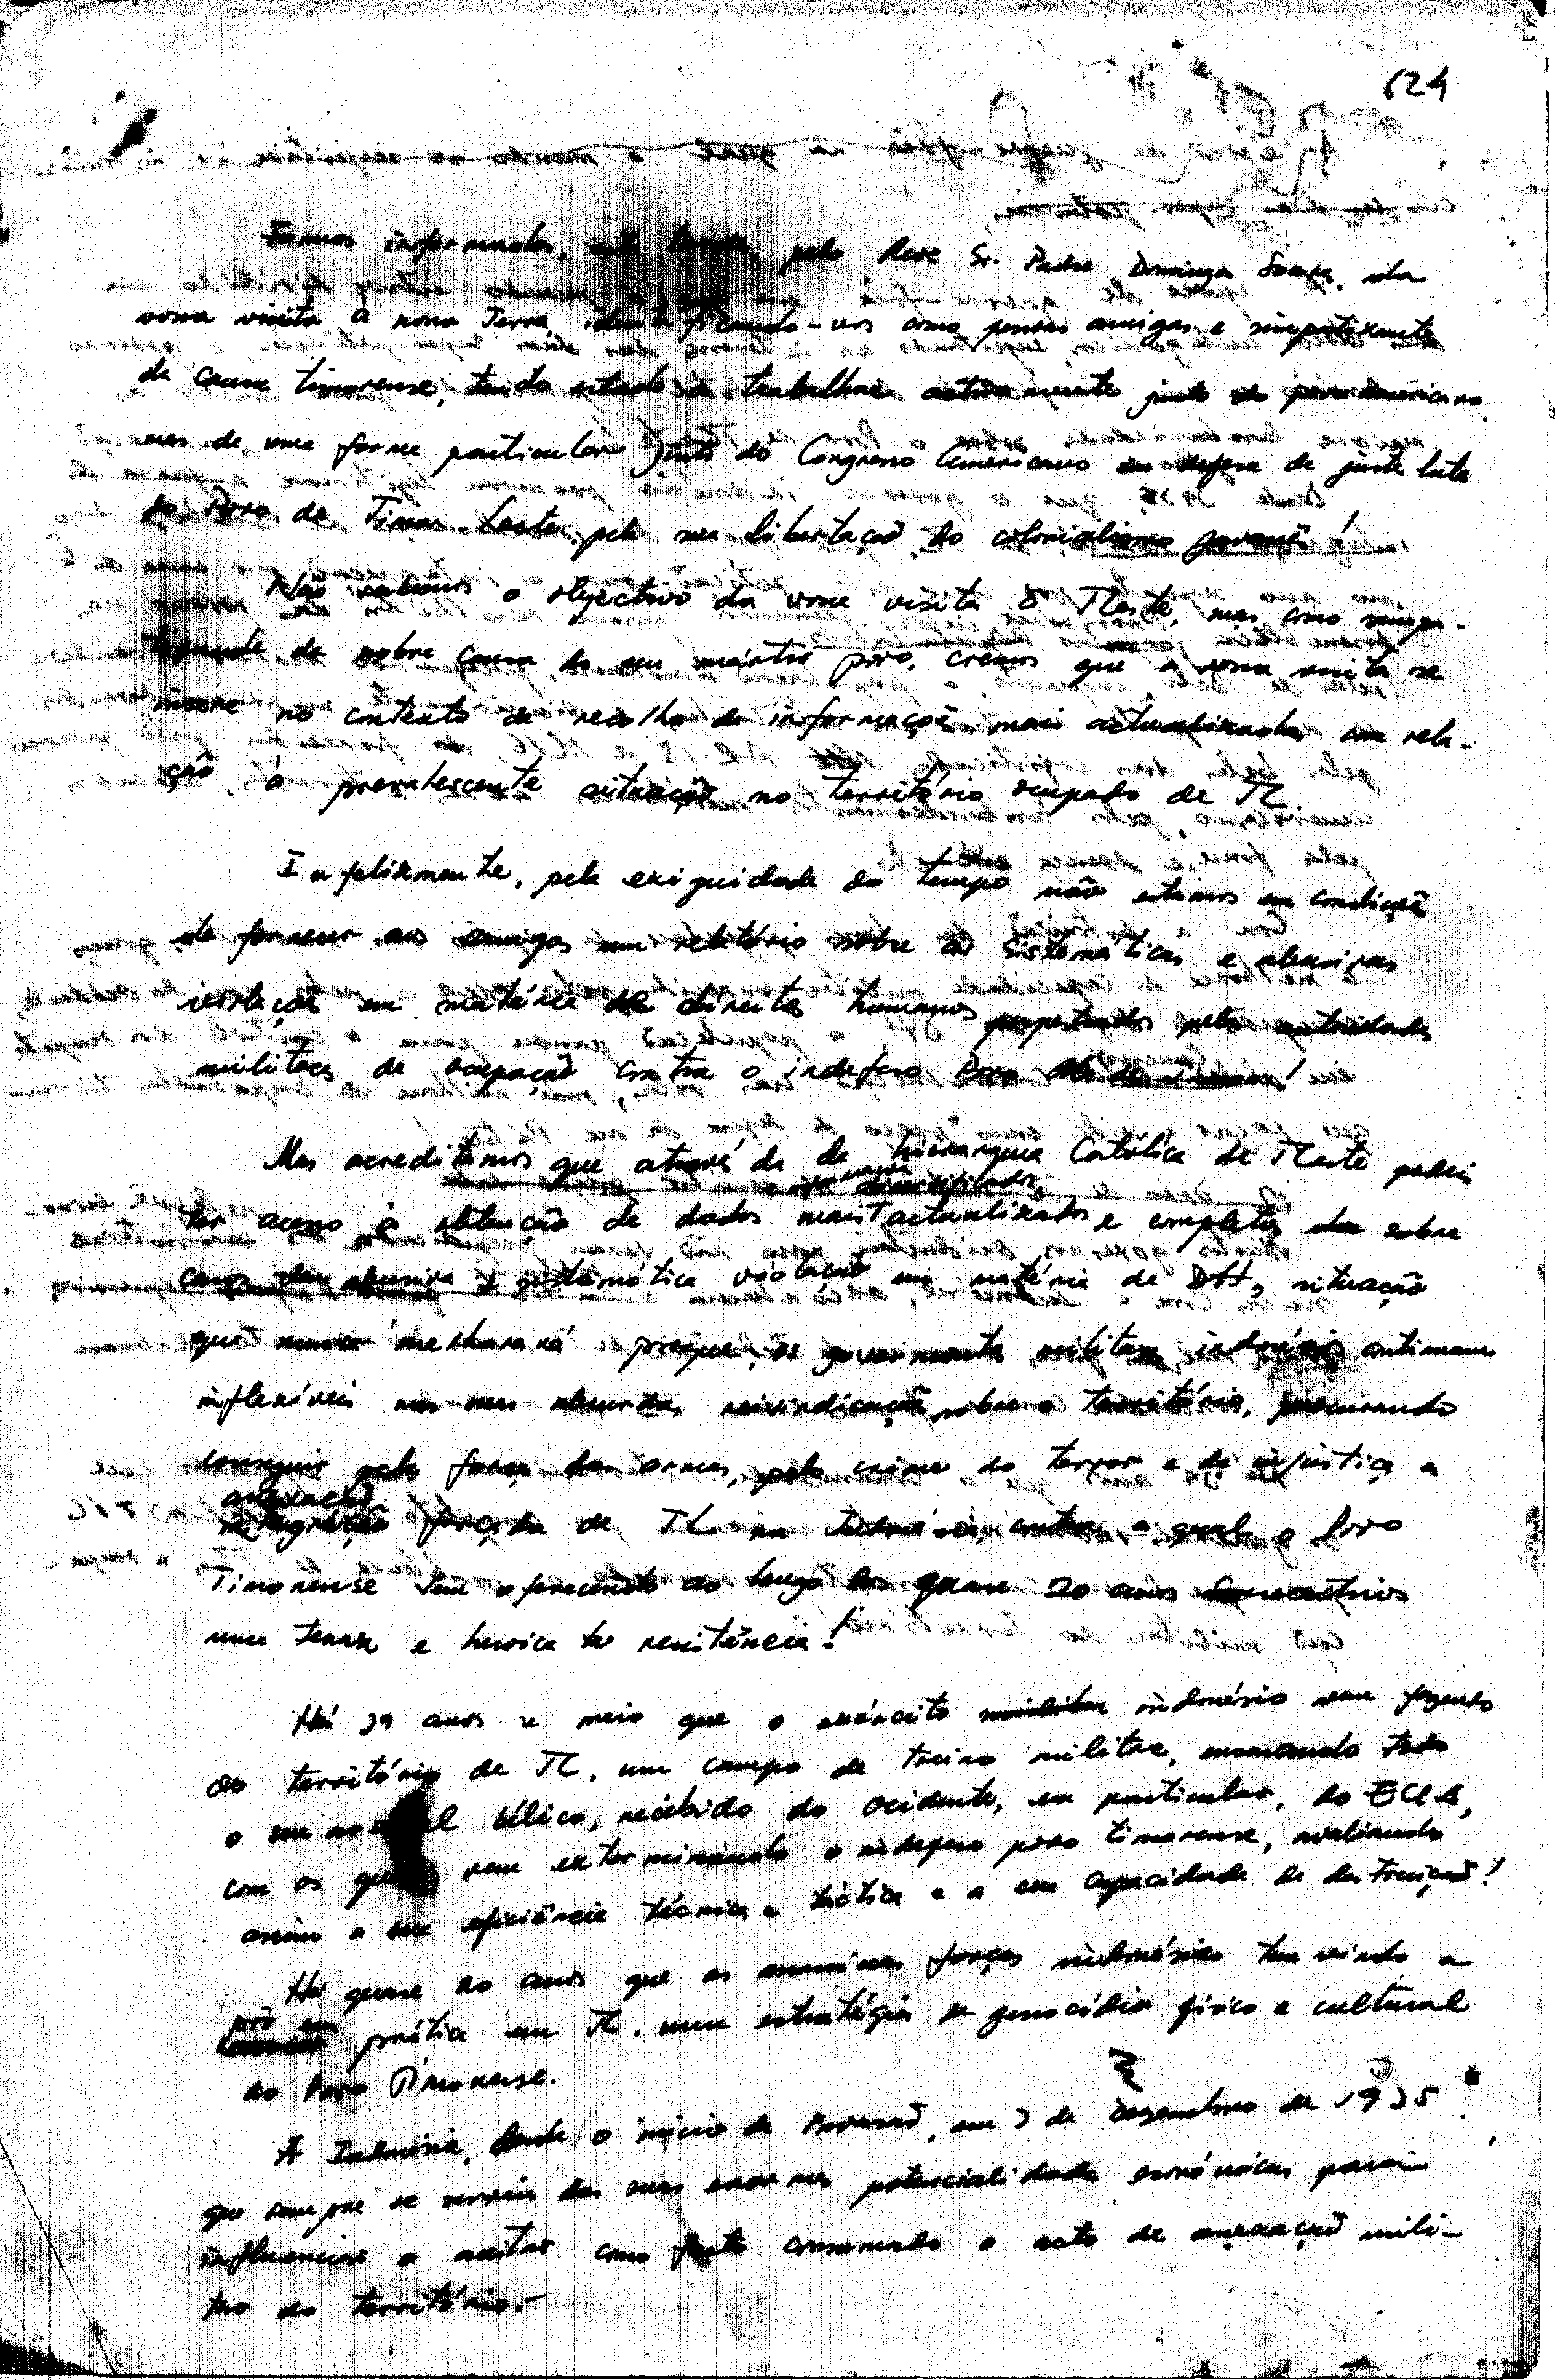 624
Fomos informados, pelo Revd Sr. Padre Domingos Soares, da
vossa visita à nossa Terra, identificando-vos como pessoas amigas e simpatizantes
da causa timorense, tendo estado a trabalhar activamente junto do povo americano
mas de uma forma particular junto do Congresso Americano em defesa da justa luta
do Povo de Timor Leste, pela sua libertação do colonialismo javanês!
Não sabemos o objectivo da vossa visita a TLeste, mas como simpa-
tizante da nobre causa do seu mártir povo, cremos que a vossa visita se
insere no contexto da recolha de informações mais actualizadas em rela-
ção à prevalescente situação no território ocupado de TL.
Infelizmente, pela exiguidade do tempo não estamos em condições
de fornecer aos amigos um relatório sobre as sistemáticas e abusivas
violações em matéria de direitos humanos perpetrados pelas autoridades
militares de ocupação contra o indefeso Povo
Mas acreditamos que através da da hierarquia Católica de TLeste podeis
diversificados,
ter acesso à obtenção de dados mais actualizados e completos da sobre
casos da abusiva e sistemática violação em matéria de DH, situação
que nunca melhorará porque, os governantes militares indonésios continuam
inflexíveis nas suas absurdas reivindicações sobre o território, procurando
conseguir pela força das armas, pelo crime do terror e da injustiça a
anexação
integração forçada de TL na Indonésia, contra a qual o Povo
Timorense vem oferecendo ao longo dos quase 20 anos consecutivos
uma tenaz e heróica resistência!
Há 19 anos e meio que o exército militar indonésio vem fazendo
do território de TL, um campo de treino militar, ensaiando todo
o seu material bélico, recebido do ocidente, em particular, do EUA,
com os quais vem exterminando o indefeso povo timorense, avaliando
assim a sua eficiência técnica e táctica e a sua capacidade de destruição!
Há quase 20 anos que as assassinas forças indonésias tem vindo a
pôr em prática em TL. uma estratégia de genocídio físico e cultural
do Povo Timorense.
A Indonésia, desde o início da invasão, em 7 de Dezembro de 1975
que sempre se serviu das suas enormes potencialidades económicas para
influenciar a aceitar como facto consumado o acto de anexação mili-
tar do território.-